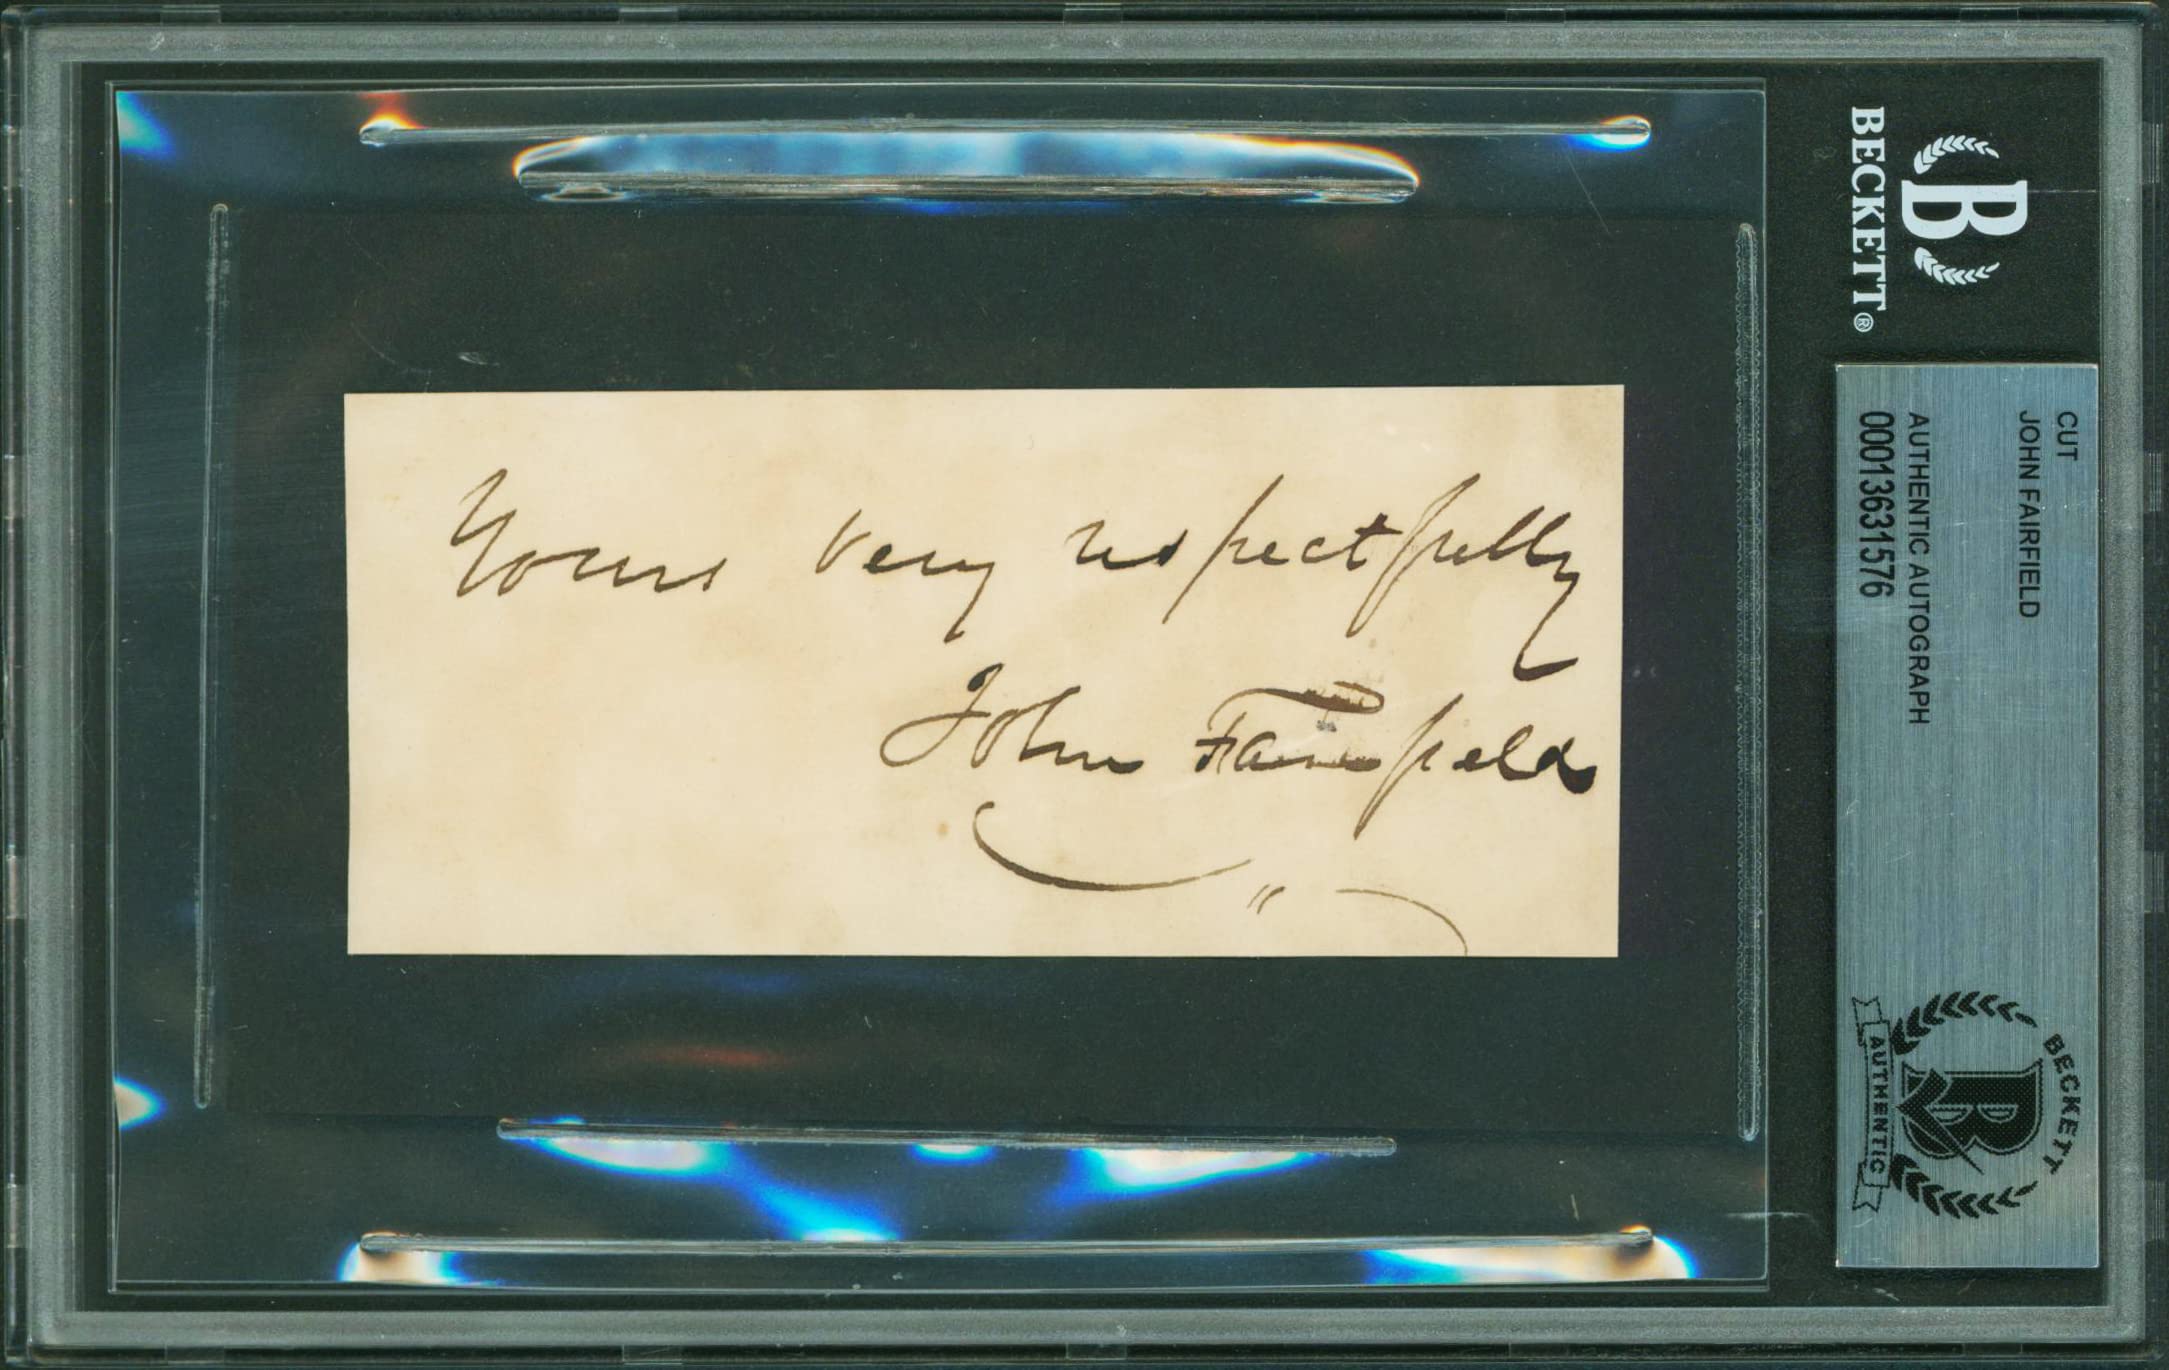 Yours very respectfully
John Fairfield
BECKETT®
CUT
JOHN FAIRFIELD
AUTHENTIC AUTOGRAPH
00013631576
BECKETT
AUTHENTIC